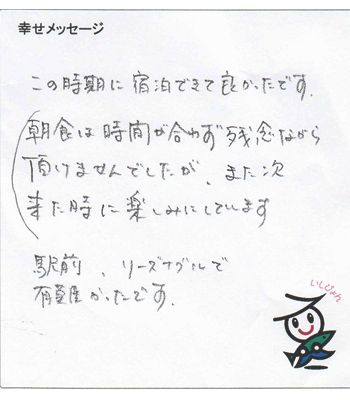 幸せメッセージ
この時期に宿泊できて良かったです.
朝食は時間が合わず残念ながら
頂けませんでしたが、また次
来た時に楽しみにしています
駅前、リーズナブルで
有難かったです.
いしぴょん